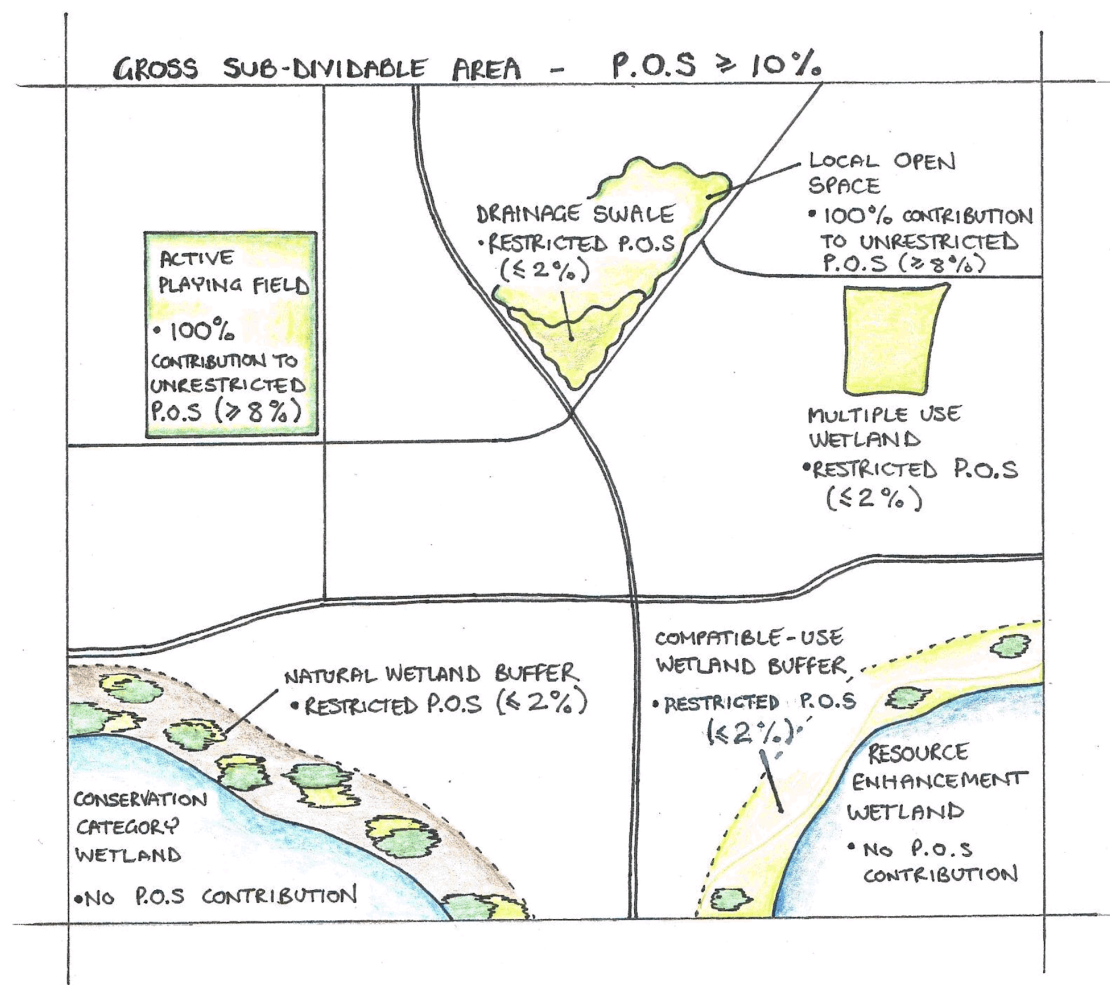 GROSS SUB-DIVIDABLE AREA - P.O.S ≥ 10%
LOCAL OPEN
SPACE
• 100% CONTRIBUTION
TO UNRESTRICTED
P.O.S (≥ 8%)
DRAINAGE SWALE
• RESTRICTED P.O.S
(≤ 2%)
ACTIVE
PLAYING FIELD
• 100%
CONTRIBUTION TO
UNRESTRICTED
P.O.S (≥ 8%)
MULTIPLE USE
WETLAND
• RESTRICTED P.O.S
(≤ 2%)
NATURAL WETLAND BUFFER
• RESTRICTED P.O.S (≤ 2%)
COMPATIBLE-USE
WETLAND BUFFER
• RESTRICTED P.O.S
(≤ 2%)
CONSERVATION
CATEGORY
WETLAND
• NO P.O.S CONTRIBUTION
RESOURCE
ENHANCEMENT
WETLAND
• NO P.O.S
CONTRIBUTION